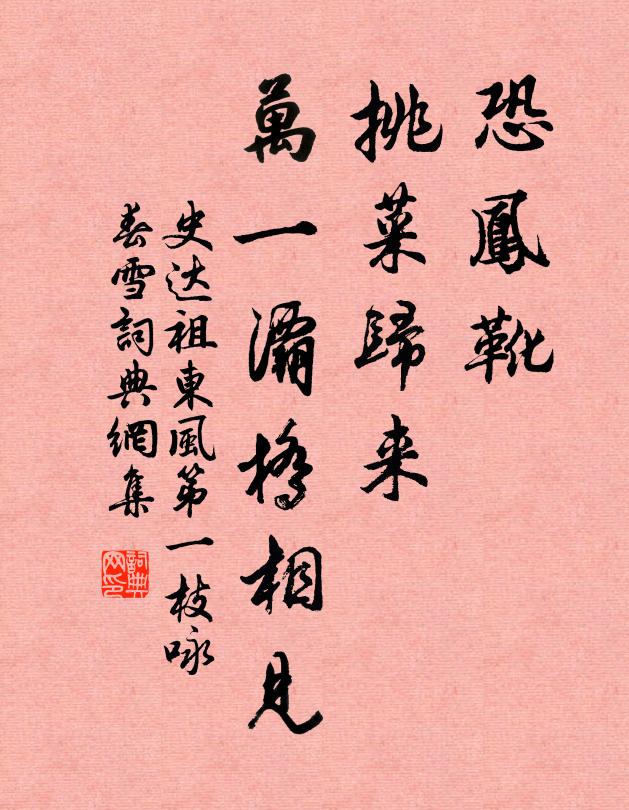 恐鳳靴
挑菜歸来
萬一灞橋相見
史达祖東風第一枝咏
春雪詞典網集
詞典
网印